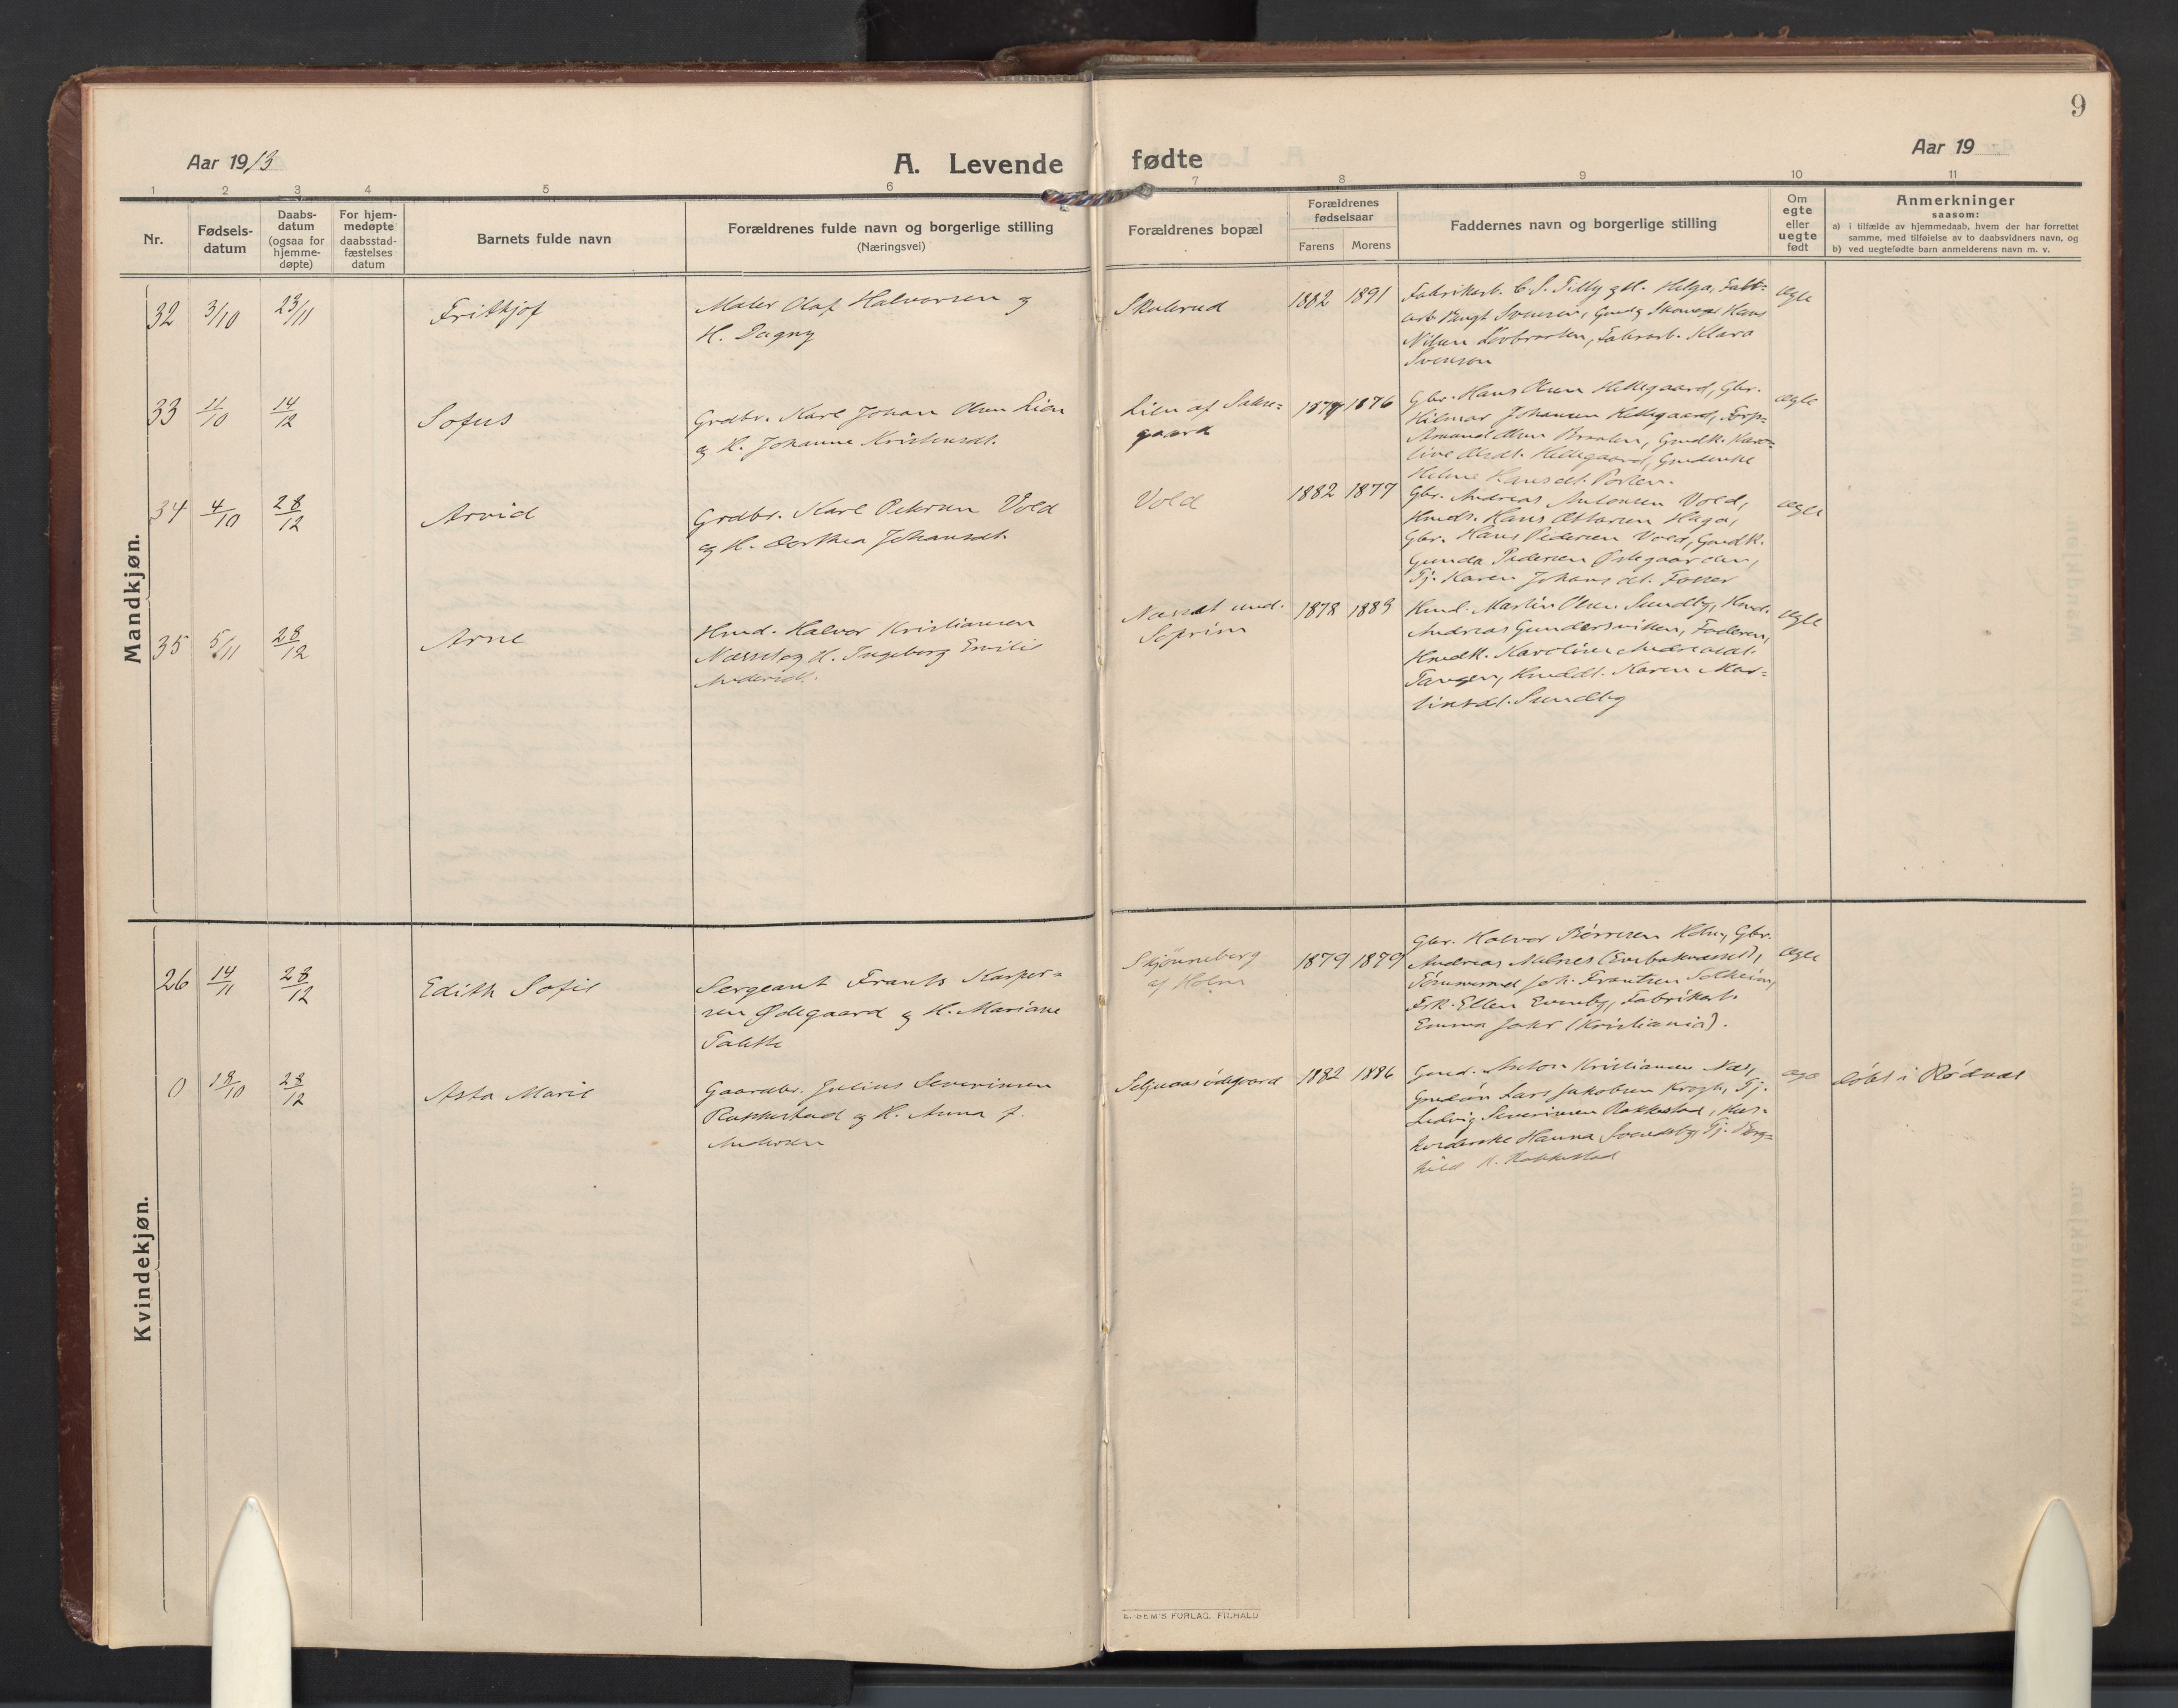 9
Aar 1913
A. Levende fødte
Aar 19
1 2 3 4 5 6 7 8 9 10 11
Nr.
Fødsels-
datum
Daabs-
datum
(ogsaa for
hjemme-
døpte)
For hjem-
medøpte
daabsstad-
fæstelses
datum
Barnets fulde navn
Forældrenes fulde navn og borgerlige stilling
(Næringsvei)
Forældrenes bopæl
Forældrenes
fødselsaar
Farens Morens
Faddernes navn og borgerlige stilling
Om
egte
eller
uegte
født
Anmerkninger
saasom:
a) i tilfælde av hjemmedaab, hvem der har forrettet
samme, med tilføielse av to daabsvidners navn, og
b) ved uegtefødte barn anmelderens navn m. v.
Mandkjøn.
32 3/10 23/11 Frithjof
Maler Olaf Halvorsen og
H. Dagny
Skulerud
1882 1891
Fabrikarb. C. S. Tilly og H. Helga, Fabr=
arb. Bengt Svensen, Hans
Nilsen, Fabrarb. Klara
Svensen
egte
33 11/10 14/12 Sofus
Grdbr. Karl Johan Olsen Lien
og H. Johanne Kristensdt.
Lien af
gaard
1876
Gbr. Hans Olsen Hellegaard, Gbr.
Hilmar Johansen Hellegaard, Forp=
Amund Olsen Braaten, Gmdk. Karo=
line Olsdt. Hellegaard,
Helene Hansdt. Porten.
egte
34 4/10 28/12 Arvid
Grdbr. Karl Petersen Vold
og H. Dorthea Johansdt.
Vold
1882 1877
Gbr. Andreas Antonsen Vold,
Hmds. Hans Ottersen Haga,
Gbr. Hans Pedersen Vold, Gmdk.
Gunda Pedersen Østegaarden,
Tj. Karen Johansdt. Fosser
egte
35 5/11 28/12 Arne
Hmd. Halvor Kristiansen
Næsset og H. Ingeborg Emilie
Andersdt.
Næsset und.
Soprim
1878 1883
Hmd. Martin Olsen Sundby, Hmd.
Andreas Gundersviken, Faderen,
Hmdk. Karoline Andreasdt.
Tangen, Hmddt. Karen Mar=
tinsdt. Sundby
egte
Kvindekjøn.
26 14/11 28/12 Edith Sofie
Sergeant Frants Kasper=
sen Ødegaard og H. Mariane
Talette
Skjønneberg
af Holm
1879 1879
Gbr. Halvor Børresen Holm, Gbr.
Andreas Mælnes
Tømmermd Joh. Frantsen Solheim,
Frk. Ellen Evenby, Fabrikarb.
Emma Jahr (Kristiania).
egte
0 18/10 28/12 Asta Marie
Gaardbr. Julius Severinsen
Rakkestad og H. Anna f.
Andersen
1882 1886
Gmd. Anton Kristiansen Næs,
Lars Jakobsen Krogh, Tj.
Ludvig Severinsen Rakkestad, Hus=
holderske Hanna Svendsby, Tj. Borg=
hild H. Rakkestad
døbt i Rødenes
E. SEM'S FORLAG, FR.HALD